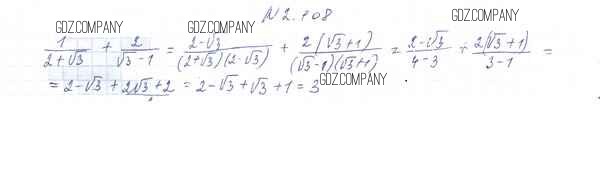 № 2.108
GDZ.COMPANY GDZ.COMPANY GDZ.COMPANY
1/(2+√3) + 2/(√3-1) = (2-√3)/((2+√3)(2-√3)) + 2(√3+1)/((√3-1)(√3+1)) = (2-√3)/(4-3) + 2(√3+1)/(3-1) =
= 2-√3 + 2√3+2 = 2-√3+√3+1 = 3
GDZ.COMPANY